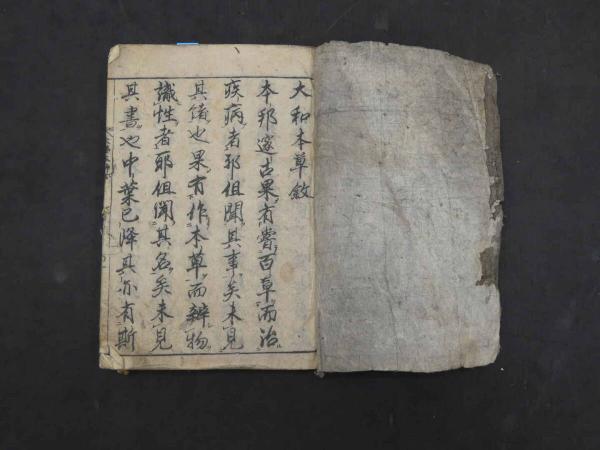 大和本草敘
本邦邃古果有甞百草而治
疾病者耶但聞其事矣未見
其緒也果有作本草而辨物
識性者耶但聞其名矣未見
其書也中葉已降其亦有斯